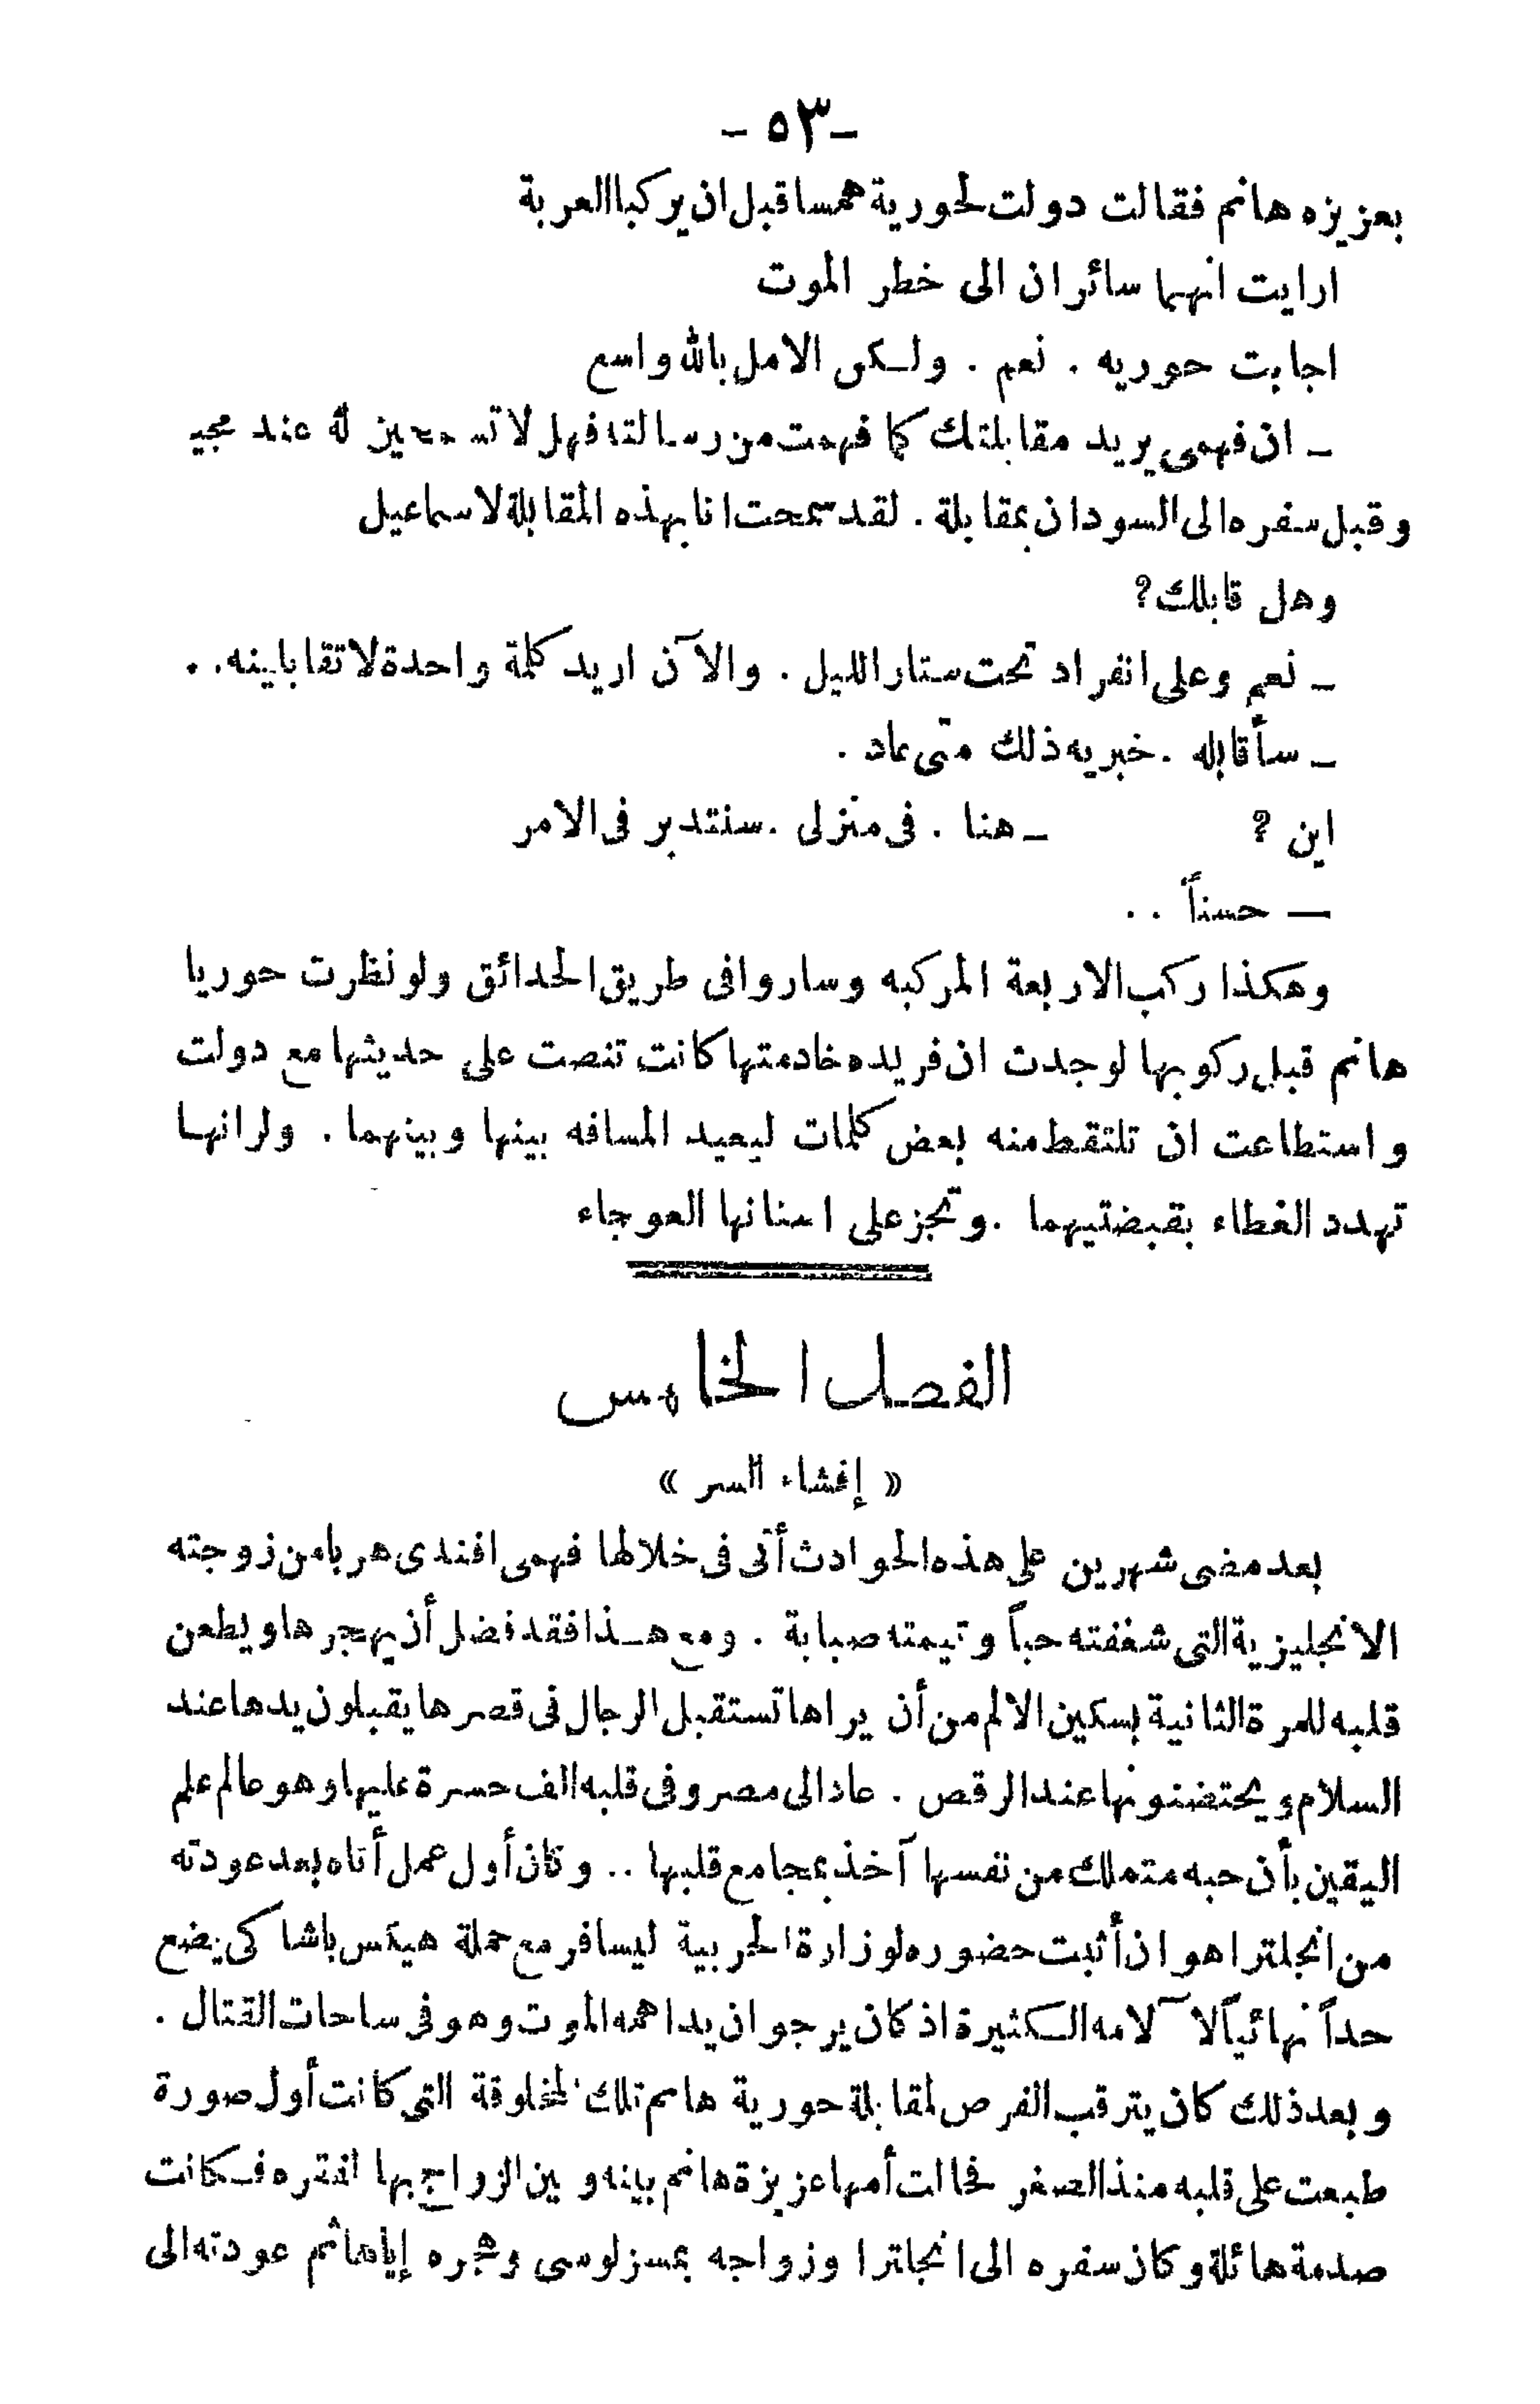 - ٥٣ -
بعزيزه هانم فقالت دولت لحورية همسا قبل ان يركبا العربة
ارايت انهما سائران الى خطر الموت
اجابت حوريه . نعم . ولكن الامل بالله واسع
ـ ان فهمى يريد مقابلتك كما فهمت من رسالته فهل لا تسمحين له عند مجيـ
وقبل سفره الى السودان بمقابلة . لقد سمحت انا بهذه المقابلة لاسماعيل
وهل قابلك ؟
ـ نعم وعلى انفراد تحت ستار الليل . والآن اريد كلمة واحدة لا تقابلينه . .
ـ سأقابله . خبريه ذلك متى عاد .
اين ؟ ـ هنا . فى منزلى . سنتدبر فى الامر
— حسناً . .
وهكذا ركب الاربعة المركبه وساروا فى طريق الحدائق ولو نظرت حوريا
هانم قبل ركوبها لوجدت ان فريده خادمتها كانت تنصت على حديثها مع دولت
واستطاعت ان تلتقط منه بعض كلمات لبعيد المسافه بينها وبينهما . ولرانها
تهدد الغطاء بقبضتيهما . وتجز على اسنانها العوجاء
الفصل الخامس
« إفشاء السر »
بعد مضى شهرين على هذه الحوادث أتى فى خلالها فهمى افندى هربا من زوجته
الانجليزية التى شغفته حباً وتيمته صبابة . ومع هذا فقد فضل أن يهجرها ويطعن
قلبه للمرة الثانية بسكين الالم من أن يراها تستقبل الرجال فى قصرها يقبلون يدها عند
السلام ويحتضنونها عند الرقص . عاد الى مصر وفى قلبه الف حسرة عليها وهو عالم علم
اليقين بأن حبه متملك من نفسها آخذ بمجامع قلبها . . وكان أول عمل أتاه بعد عودته
من انجلترا هو ان أثبت حضوره لوزارة الحربية ليسافر مع حملة هيكس باشا كى يضع
حداً نهائياً لآلامه الكثيرة اذ كان يرجو ان يداهمه الموت وهو فى ساحات القتال .
وبعد ذلك كان يترقب الفرص لمقابلة حورية هانم تلك المخلوقة التى كانت أول صورة
طبعت على قلبه منذ الصغر فحالت أمها عزيزة هانم بينه وبين الزواج بها لفقره فكانت
صدمة هائلة وكان سفره الى انجلترا وزواجه بمسز لوسى وهجره إياها ثم عودته الى